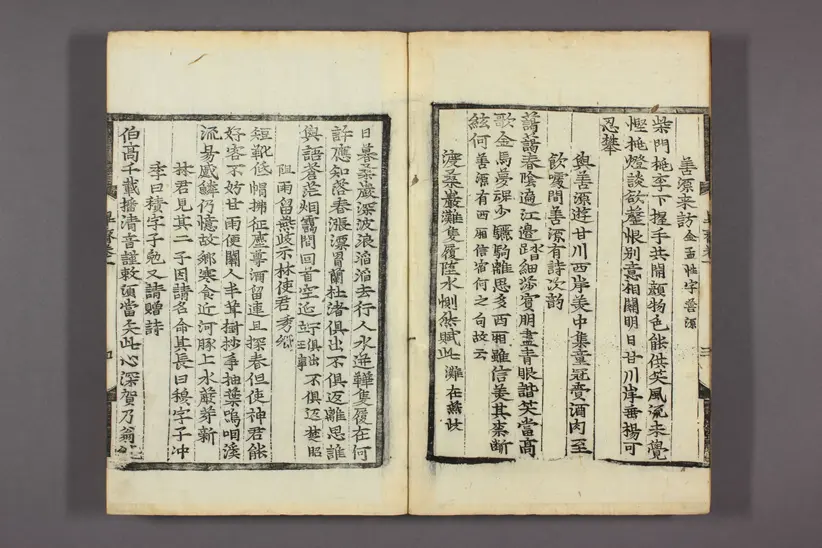 善源來訪 金孟性字善源
柴門拖李下握手共開顏物色能供笑風流未覺
慳挑燈談欲盡恨別意相關明日甘川岸垂楊可
忍攀
與善源遊甘川西岸美中集童冠賫酒肉至
飮噱間善源有詩次韵
蕩蕩春陰過江邊踏細莎賓朋盡靑眼諧笑當高
歌金馬夢魂少驪駒離思多西廂雖信美其柰斷
絃何 善源有西廂信宿何之句故云
渡桑巖灘隻履墮水惻然賦此 灘在燕歧
日暮桑巖深波浪滔滔去行人水迸鞾隻履在何
許應知落春漲漂冒蘭杜渚俱出不俱返離思誰
與語蒼茫烟靄間回首空延竚 俱出不俱返楚昭王事
阻雨留燕歧示林使君秀卿
短靴侵帽拂征塵尊酒留連且探春但使神君能
好客不妨甘雨便關人半葺樹杪手抽葉嗚咽溪
流易感鱗仍憶故鄕寒食近河豚上水荻芽新
林君見其二子因請名命其長曰稶字子冲
季曰積字子勉又請贈詩
伯高千載播淸音謹敕須當矣此心深賀乃翁